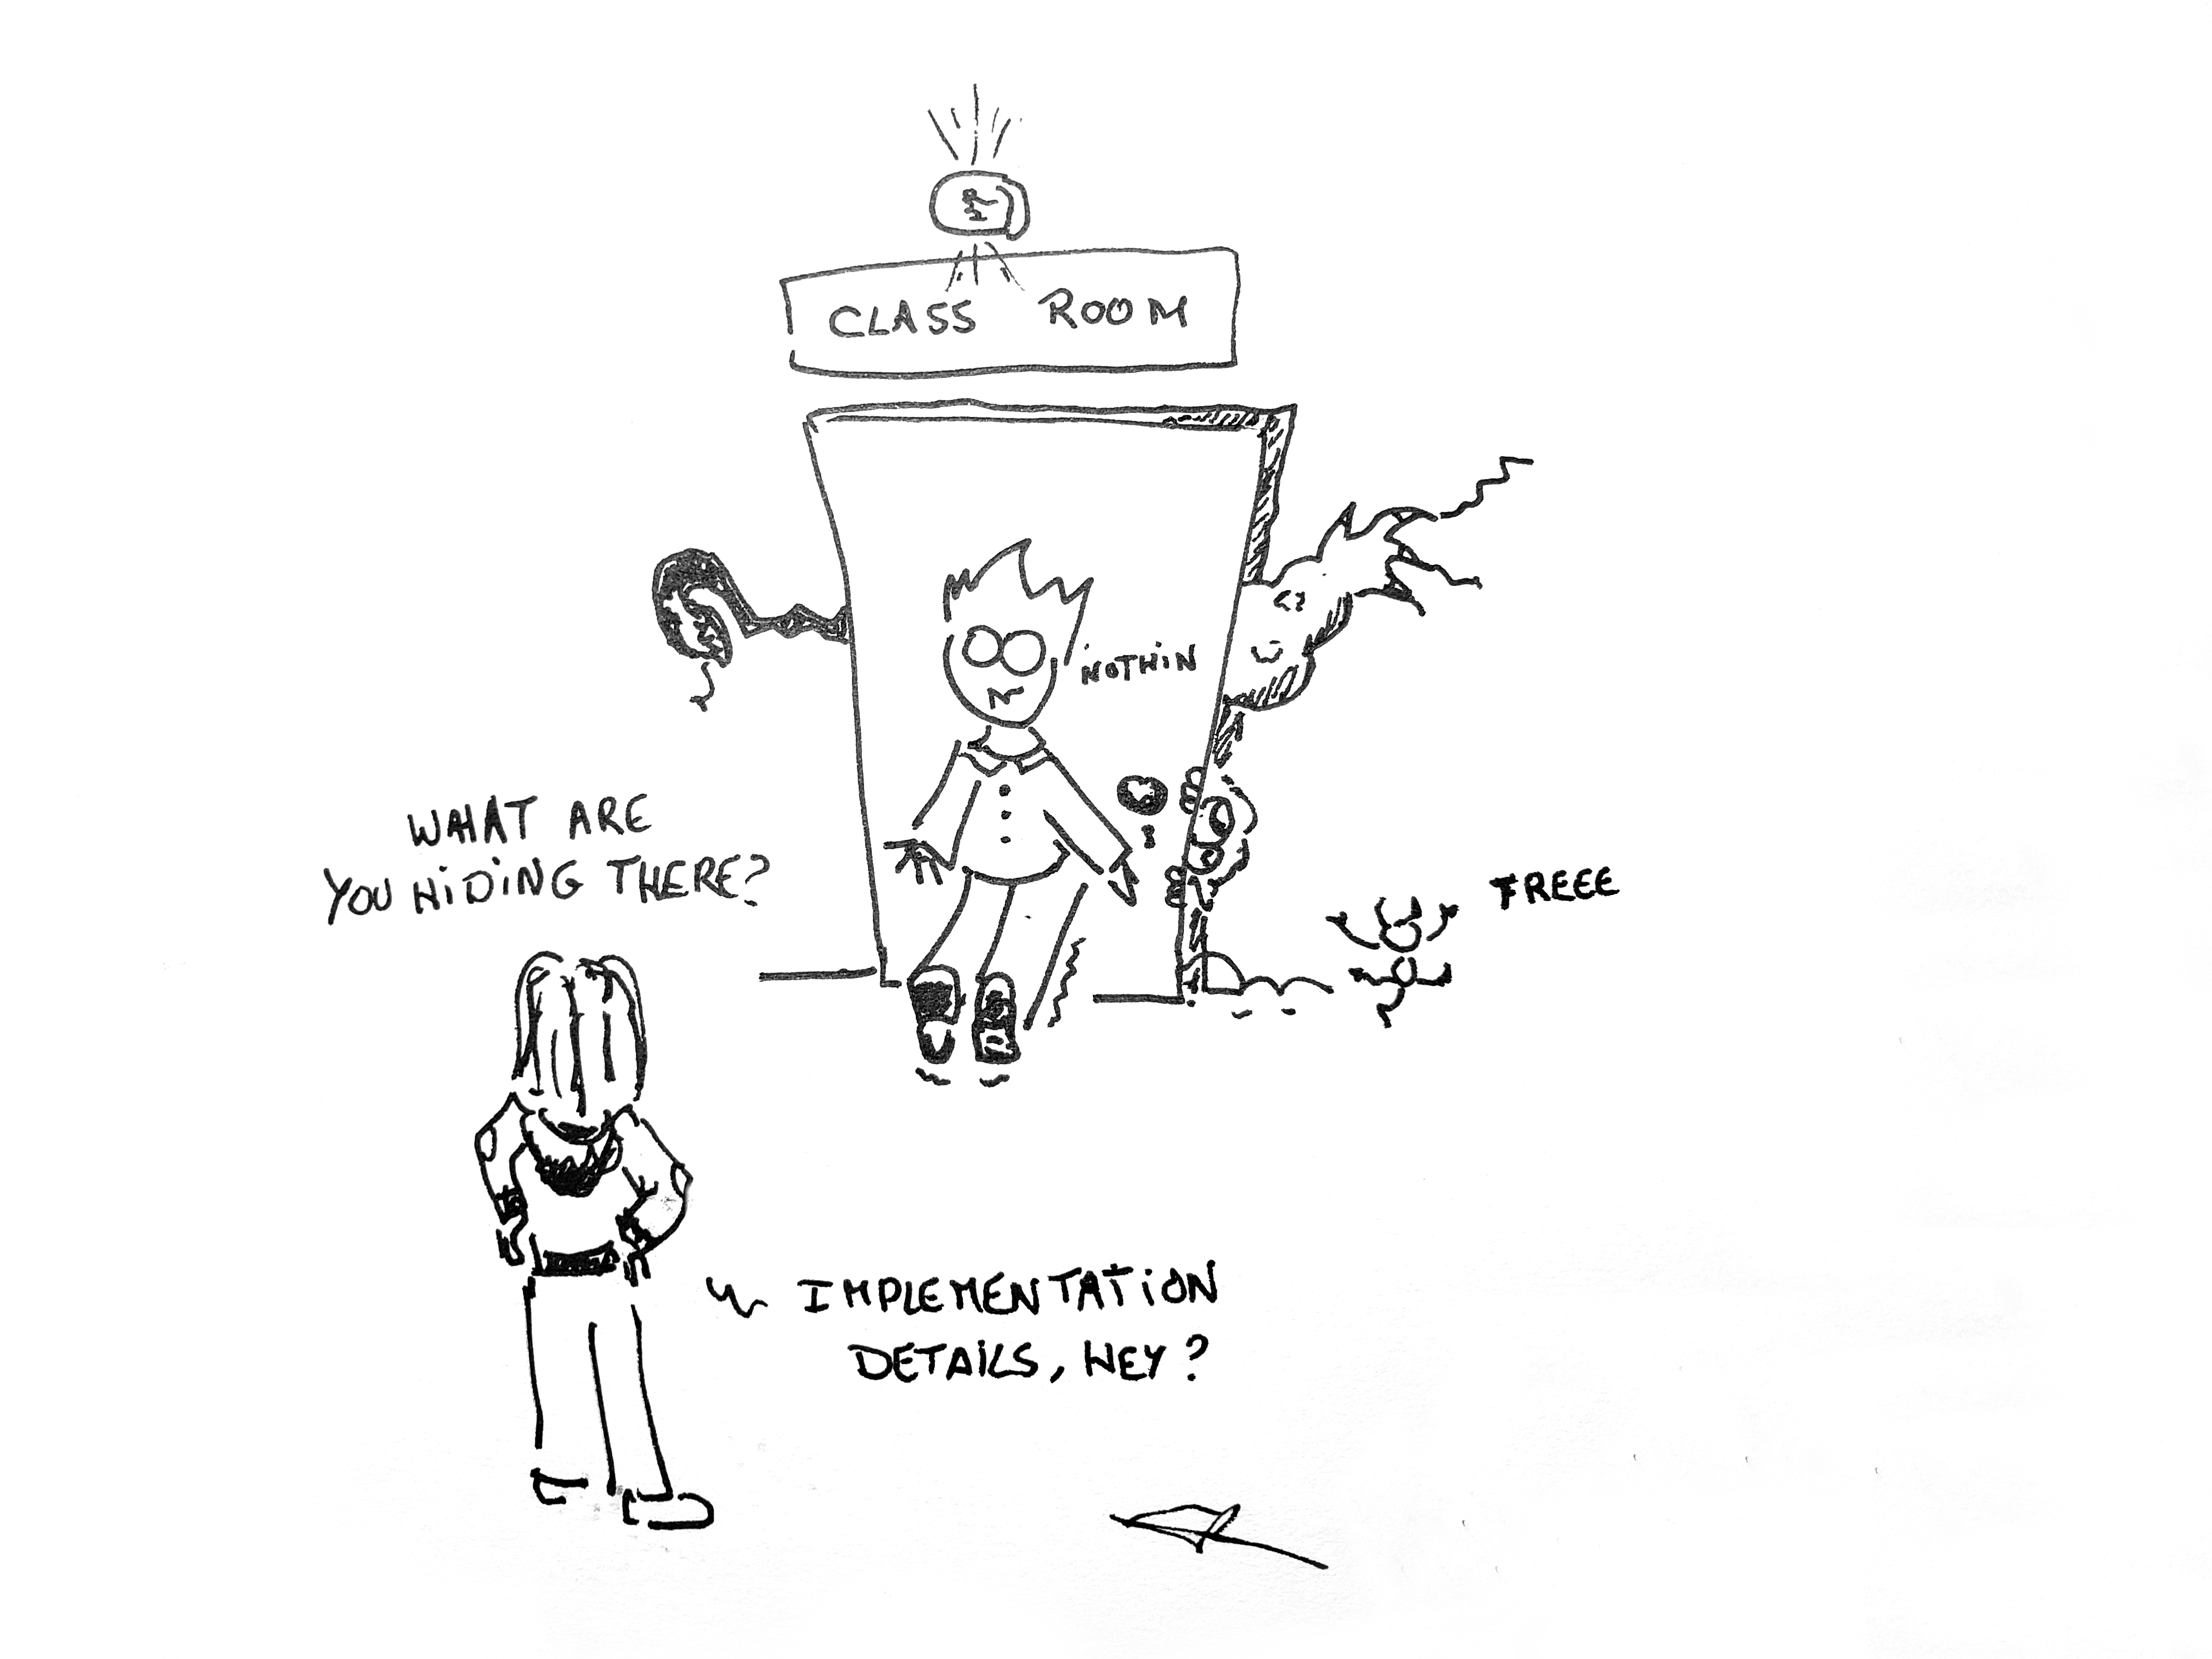 CLASS ROOM
NOTHIN
WHAT ARE
YOU HIDING THERE?
FREEE
IMPLEMENTATION
DETAILS, HEY?